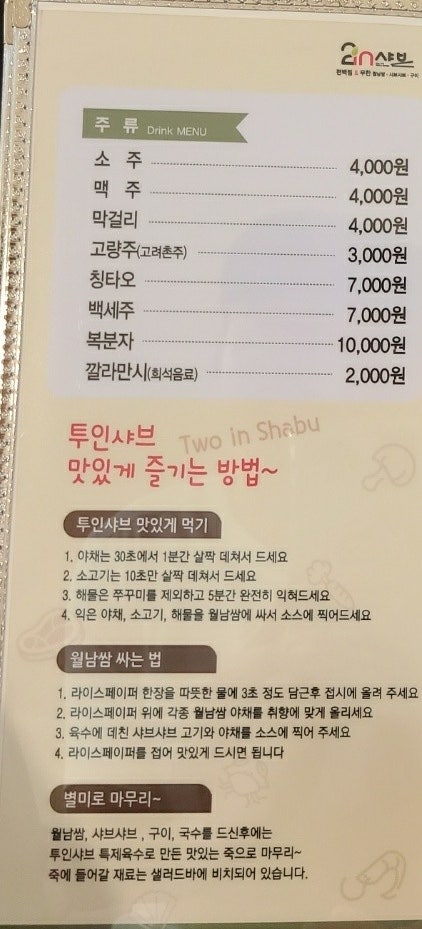 2in 샤브
월남쌈 · 샤브샤브 · 구이
주 류 Drink MENU
소 주 4,000원
맥 주 4,000원
막걸리 4,000원
고량주(고려촌주) 3,000원
칭타오 7,000원
백세주 7,000원
복분자 10,000원
깔라만시(희석음료) 2,000원
투인샤브 Two in Shabu
맛있게 즐기는 방법~
투인샤브 맛있게 먹기
1. 야채는 30초에서 1분간 살짝 데쳐서 드세요
2. 소고기는 10초만 살짝 데쳐서 드세요
3. 해물은 쭈꾸미를 제외하고 5분간 완전히 익혀드세요
4. 익은 야채, 소고기, 해물을 월남쌈에 싸서 소스에 찍어드세요
월남쌈 싸는 법
1. 라이스페이퍼 한장을 따뜻한 물에 3초 정도 담근후 접시에 올려 주세요
2. 라이스페이퍼 위에 각종 월남쌈 야채를 취향에 맞게 올리세요
3. 육수에 데친 샤브샤브 고기와 야채를 소스에 찍어 주세요
4. 라이스페이퍼를 접어 맛있게 드시면 됩니다
별미로 마무리~
월남쌈, 샤브샤브 , 구이, 국수를 드신후에는
투인샤브 특제육수로 만든 맛있는 죽으로 마무리~
죽에 들어갈 재료는 샐러드바에 비치되어 있습니다.